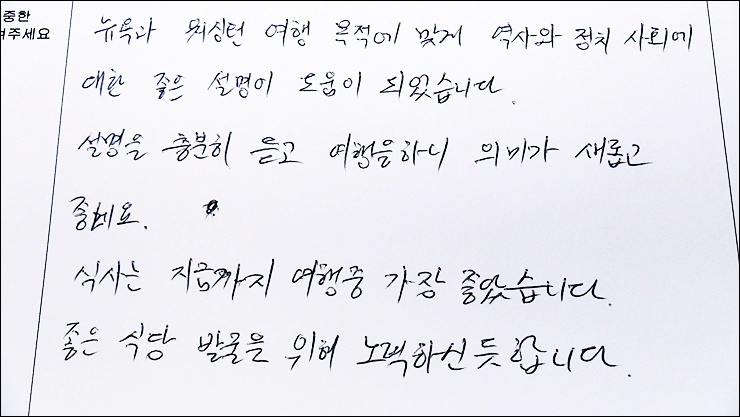 중한
겨주세요
뉴욕과 워싱턴 여행 목적에 맞게 역사와 정치 사회에
대한 좋은 설명이 도움이 되었습니다.
설명을 충분히 듣고 여행을하니 의미가 새롭고
좋네요.
식사는 지금까지 여행중 가장 좋았습니다.
좋은 식당 발굴을 위해 노력하신듯 합니다.